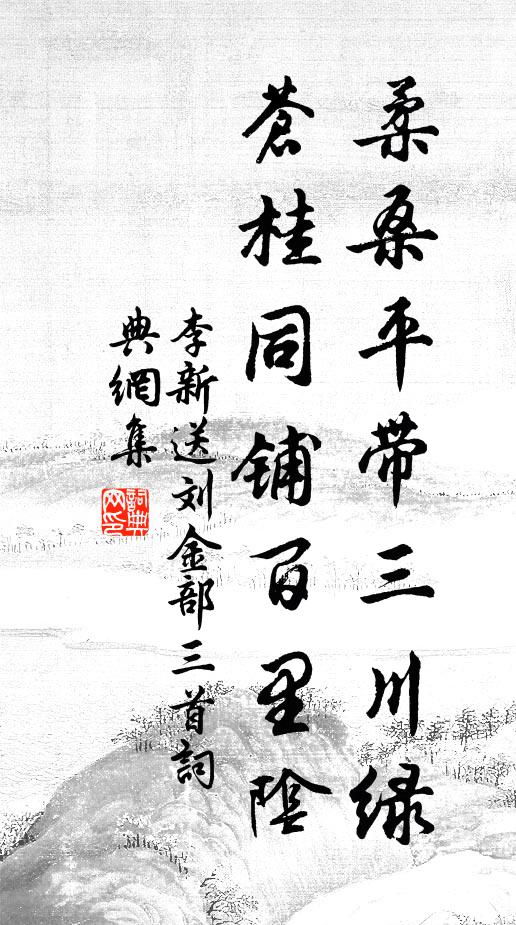 柔桑平带三川绿
苍桂同铺百里阴
李新送刘金部三首词
典網集
詞典網印